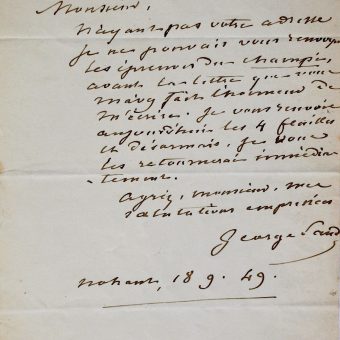 Monsieur,
N'ayant pas votre adresse
je ne pouvais vous renvoyer
les épreuves du champi,
avant la lettre que vous
m'avez fait l'honneur de
m'écrire. Je vous renvoie
aujourd'hui les 4 feuilles
et désormais, je vous
les retournerai immédia
-tement.
Agréez, monsieur, mes
salutations empressées
George Sand
nohant, 18 9. 49.